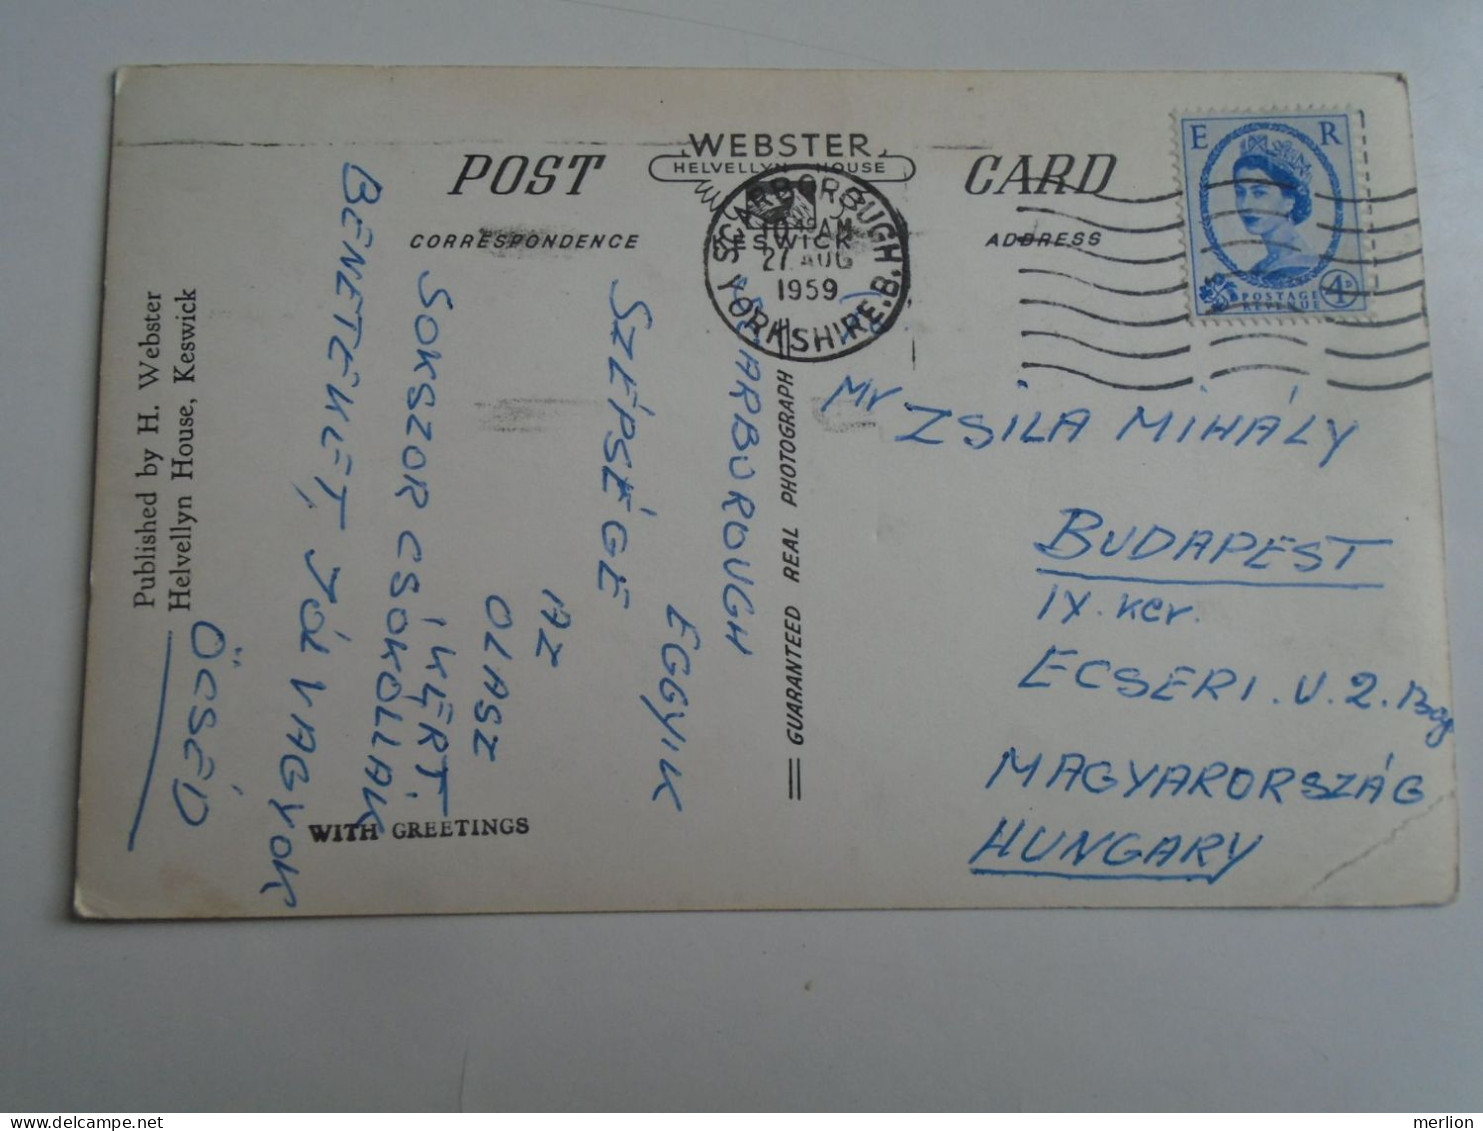 POST
WEBSTER
HELVELLYN HOUSE
CARD
CORRESPONDENCE
KESWICK
ADDRESS
SCARBOROUGH
10 AM
27 AUG
1959
YORKSHIRE.B.H
E R
POSTAGE
REVENUE
4D
SCARBOROUGH
EGGYIK
SZÉPSÉGE
AZ
OLASZ
KERT.
SOKSZOR CSOKOLLAK
BENETEKET, JÓL VAGYOK
ÖCSÉD
Mr ZSILA MIHÁLY
BUDAPEST
IX. ker.
ECSERI. U. 2.
MAGYARORSZÁG
HUNGARY
GUARANTEED REAL PHOTOGRAPH
WITH GREETINGS
Published by H. Webster
Helvellyn House, Keswick
merlion
delcampe.net